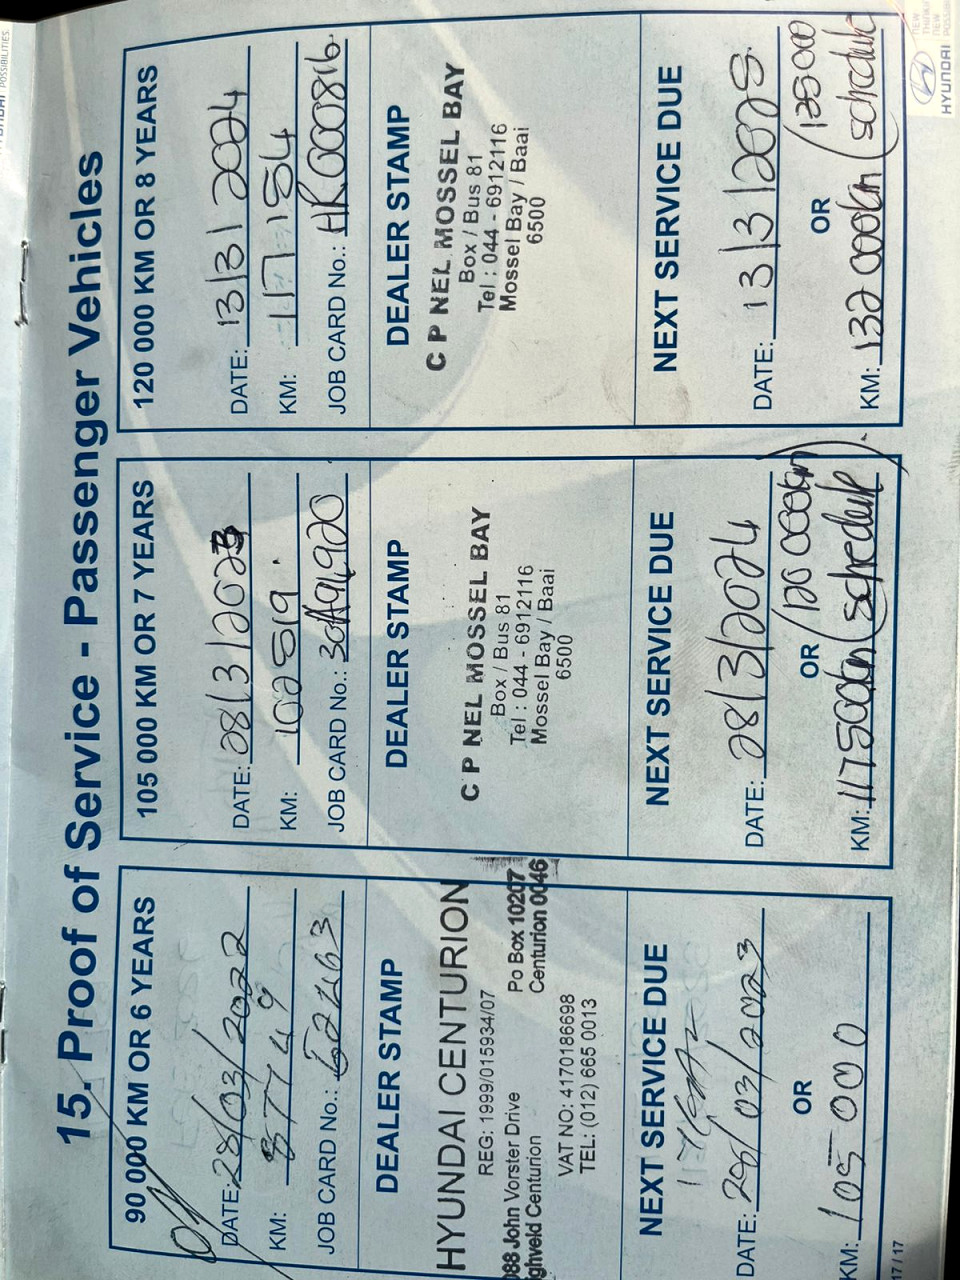 15. Proof of Service - Passenger Vehicles
90 000 KM OR 6 YEARS
DATE: 28/03/2022
KM: 87749
JOB CARD No.:
DEALER STAMP
HYUNDAI CENTURION
REG: 1999/015934/07
088 John Vorster Drive Po Box 10207
ghveld Centurion Centurion 0046
VAT NO: 4170186698
TEL: (012) 665 0013
NEXT SERVICE DUE
DATE: 28/03/2023
OR
KM: 105 000
17 / 17
105 000 KM OR 7 YEARS
DATE: 28/3/2023
KM: 102519
JOB CARD No.:
DEALER STAMP
C P NEL MOSSEL BAY
Box / Bus 81
Tel : 044 - 6912116
Mossel Bay / Baai
6500
NEXT SERVICE DUE
DATE: 28/3/2024
OR (120 000km
KM: 117500km (schedule).
120 000 KM OR 8 YEARS
DATE: 13/3/2024
KM: 117184
JOB CARD No.: HR000816
DEALER STAMP
C P NEL MOSSEL BAY
Box / Bus 81
Tel : 044 - 6912116
Mossel Bay / Baai
6500
NEXT SERVICE DUE
DATE: 13/3/2025
OR (135000
KM: 132 000km (schedule
HYUNDAI
NEW
THINKING.
NEW
POSSIBILITIES.